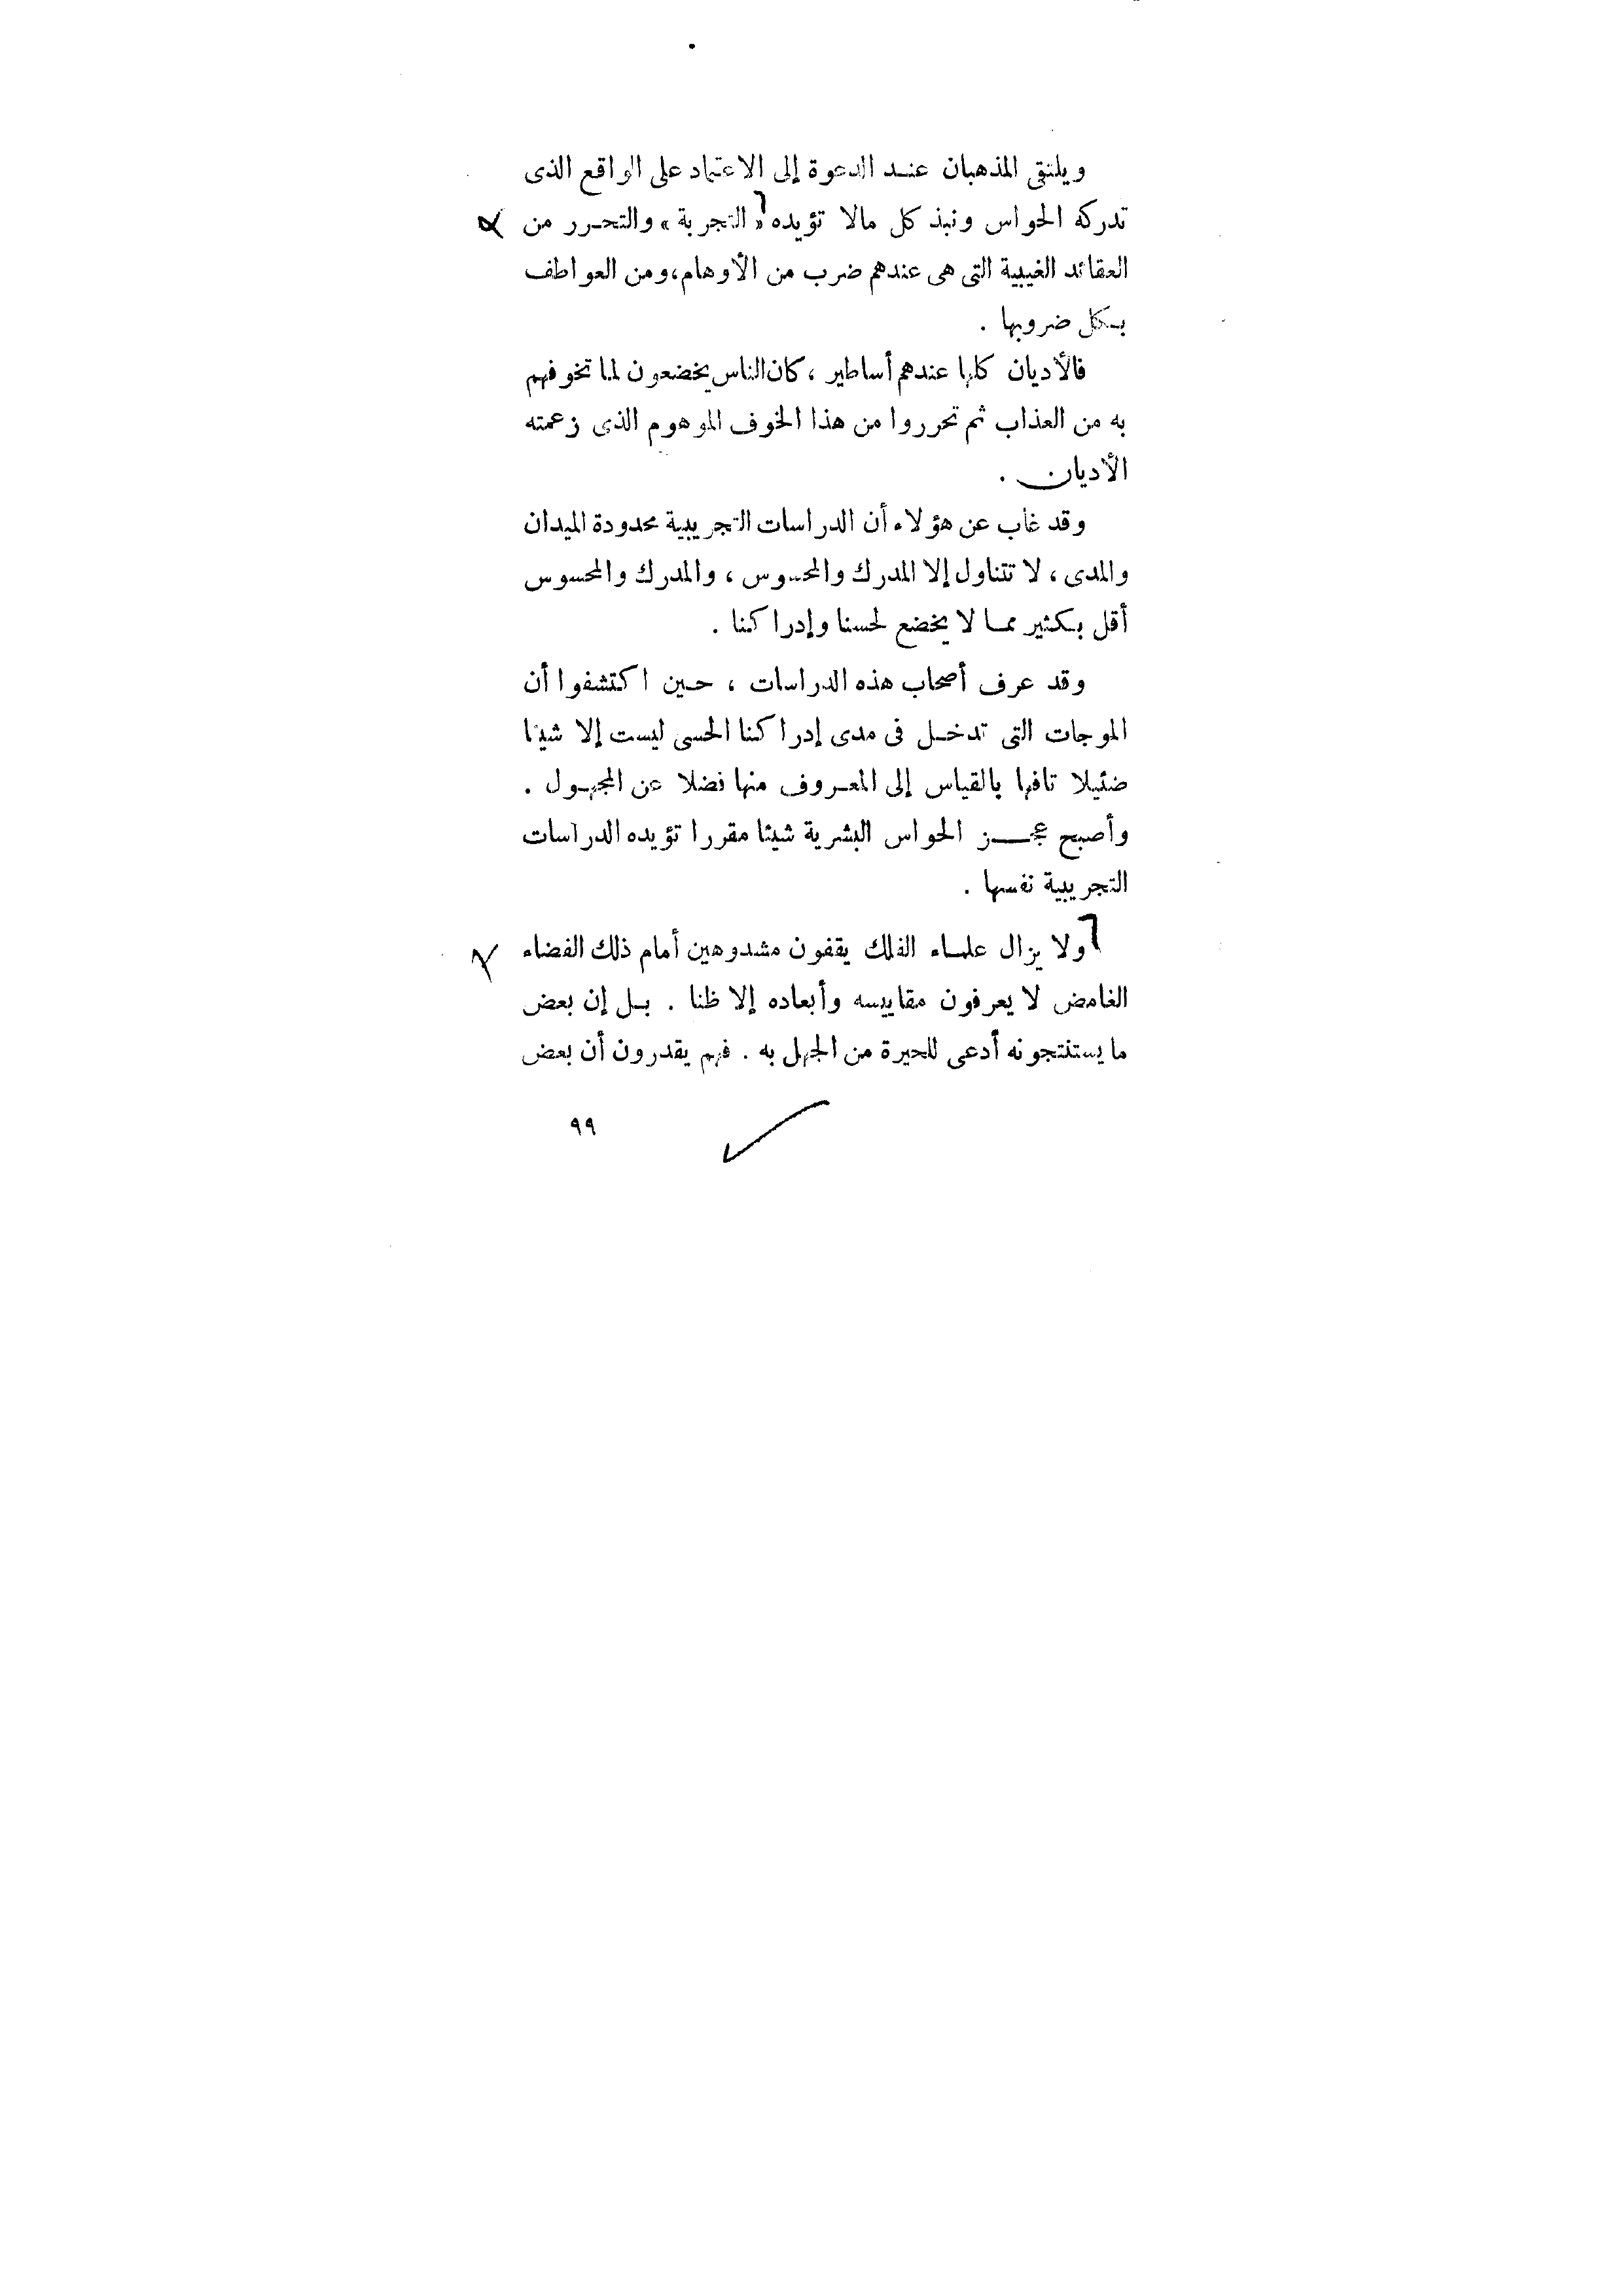 ويلتقى المذهبان عند الدعوة إلى الاعتماد على الواقع الذى
تدركه الحواس ونبذ كل مالا تؤيده « التجربة » والتحرر من
العقائد الغيبية التى هى عندهم ضرب من الأوهام ، ومن العواطف
بكل ضروبها .
فالأديان كلها عندهم أساطير ، كان الناس يخضعون لما تخوفهم
به من العذاب ثم تحرروا من هذا الخوف الموهوم الذى زعمته
الأديان .
وقد غاب عن هؤلاء أن الدراسات التجريبية محدودة الميدان
والمدى ، لا تتناول إلا المدرك والمحسوس ، والمدرك والمحسوس
أقل بكثير مما لا يخضع لحسنا وإدراكنا .
وقد عرف أصحاب هذه الدراسات ، حين اكتشفوا أن
الموجات التى تدخل فى مدى إدراكنا الحسى ليست إلا شيئا
ضئيلا تافها بالقياس إلى المعروف منها فضلا عن المجهول .
وأصبح عجز الحواس البشرية شيئا مقررا تؤيده الدراسات
التجريبية نفسها .
ولا يزال علماء الفلك يقفون مشدوهين أمام ذلك الفضاء
الغامض لا يعرفون مقاييسه وأبعاده إلا ظنا . بل إن بعض
ما يستنتجونه أدعى للحيرة من الجهل به . فهم يقدرون أن بعض
٩٩